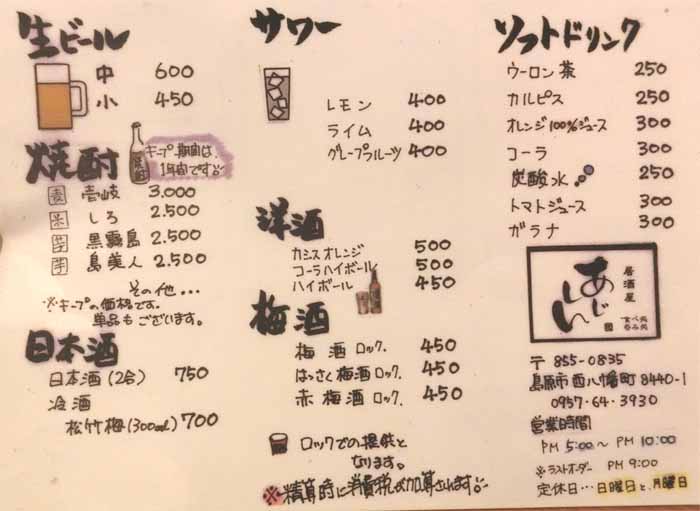 生ビール
中 600
小 450
焼酎
キープ期間は、
1年間です。
麦 壱岐 3.000
米 しろ 2.500
芋 黒霧島 2.500
芋 島美人 2.500
その他...
※キープの価格です。
単品もございます。
日本酒
日本酒(2合) 750
冷酒
松竹梅(300ml) 700
サワー
レモン 400
ライム 400
グレープフルーツ 400
洋酒
カシスオレンジ 500
コーラハイボール 500
ハイボール 450
梅酒
梅酒ロック. 450
はっさく梅酒ロック. 450
赤梅酒ロック. 450
ロックでの提供と
なります。
※精算時に消費税が加算されます。
ソフトドリンク
ウーロン茶 250
カルピス 250
オレンジ100%ジュース 300
コーラ 300
炭酸水 250
トマトジュース 300
ガラナ 300
居酒屋
あじしん
食べ処
呑み処
〒855-0835
島原市西八幡町8440-1
0957-64-3930
営業時間
PM 5:00~PM 10:00
※ラストオーダー PM 9:00
定休日…日曜日と、月曜日